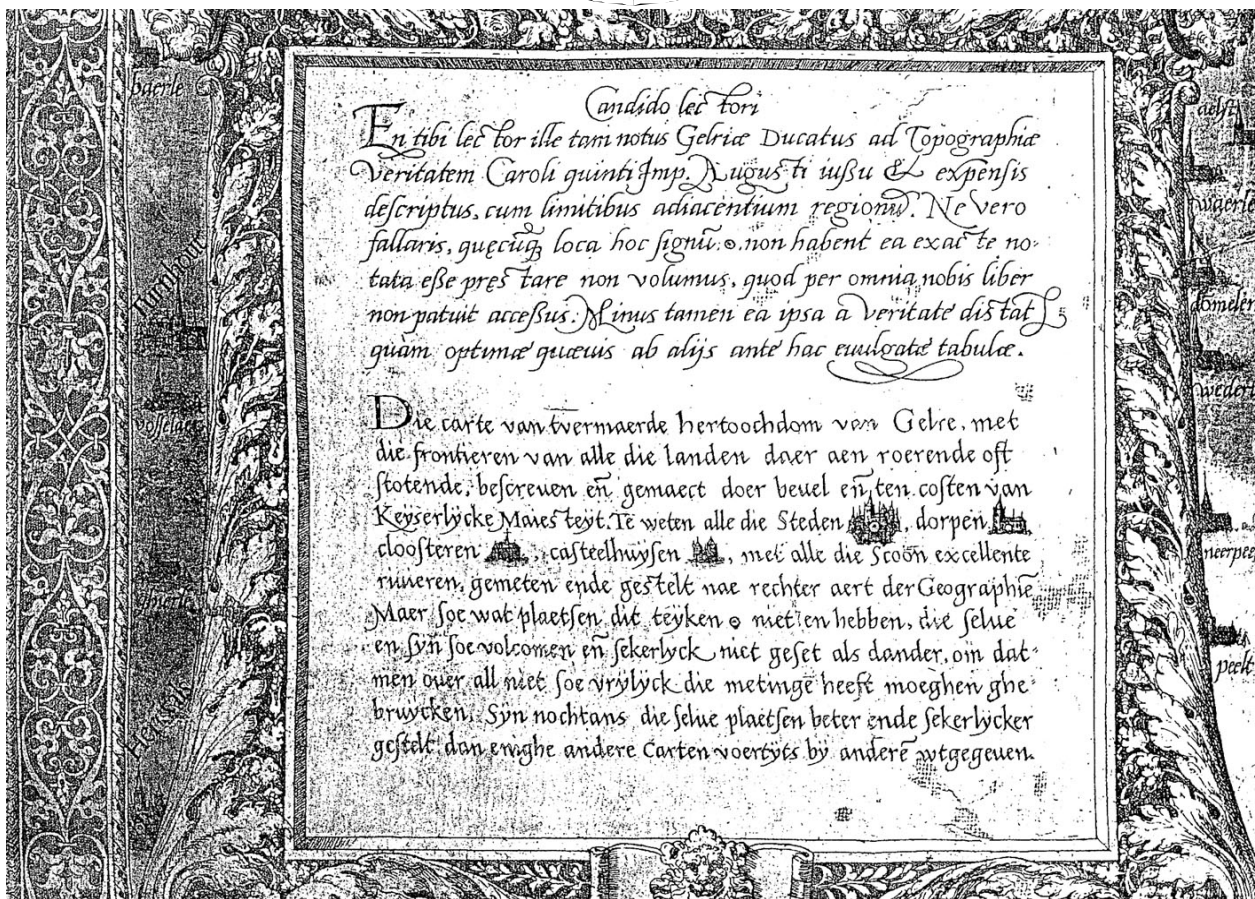 Candido lectori
En tibi lector ille tam notus Gelriæ Ducatus ad Topographiæ
veritatem Caroli quinti Imp. Augusti iußu & expensis
descriptus, cum limitibus adiacentium regionũ. Ne vero
fallaris, quęcũq; loca hoc signũ ⊙ non habent ea exacte no-
tata eße pręstare non volumus, quod per omnia nobis liber
non patuit acceßus. Minus tamen ea ipsa a veritate distat
quàm optimæ quæuis ab alijs ante hac euulgatæ tabulæ.
Die carte van tvermaerde hertoochdom van Gelre, met
die frontieren van alle die landen daer aen roerende oft
stotende, bescreuen eñ gemaect doer beuel eñ ten costen van
Keyserlycke Maiesteyt. Te weten alle die Steden , dorpen
cloosteren , casteelhuysen , met alle die Scoon excellente
riuieren, gemeten ende gestelt nae rechter aert der Geographiẽ
Maer soe wat plaetsen dit teyken ⊙ niet en hebben, die selue
en syn soe volcomen eñ sekerlyck niet geset als dander, om dat
men ouer all niet soe vrylyck die metinge heeft moeghen ghe
bruycken. Syn nochtans die selue plaetsen beter ende sekerlycker
gestelt dan enighe andere Carten voertyts by anderẽ wtgegeuen.
baerle
Turnhout
vosselaer
aelst
waerle
domelen
wedert
neerpelt